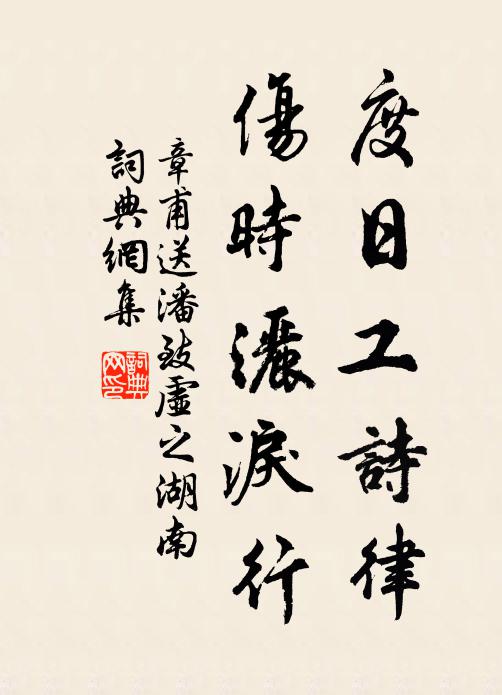 度日工詩律
傷時灑淚行
章甫送潘致虛之湖南
詞典網集
詞典網印